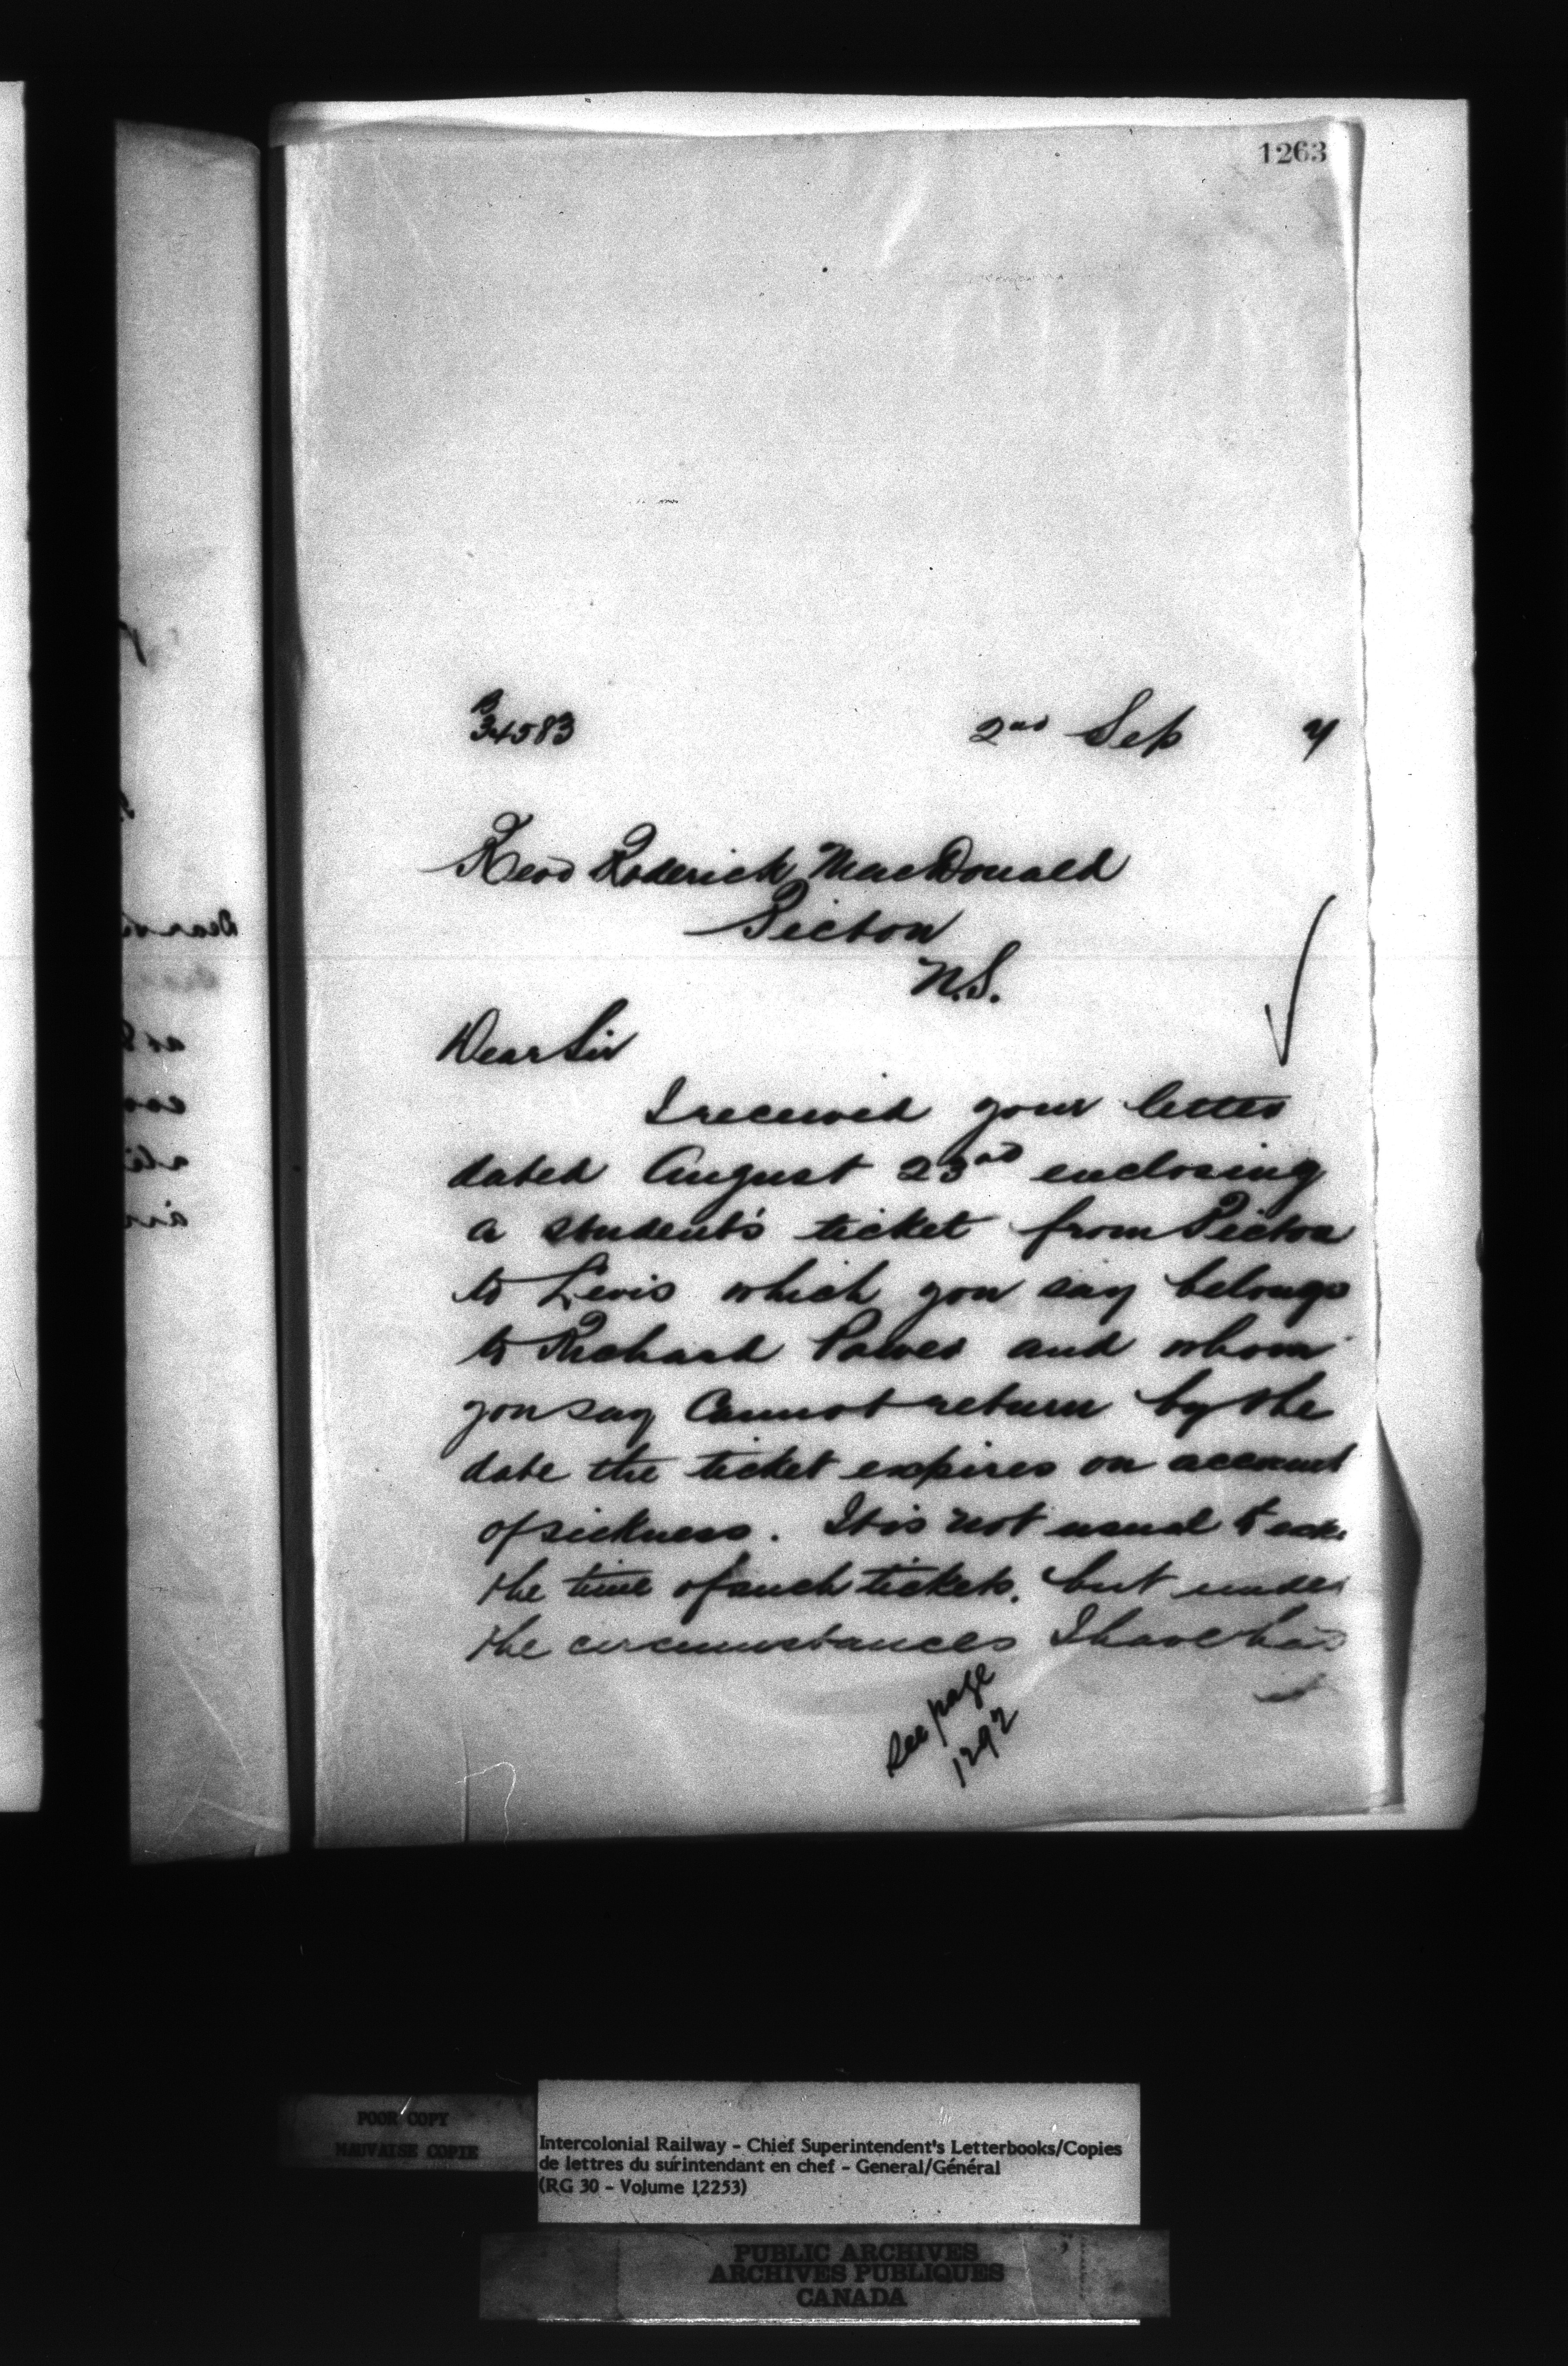 1263
B
34583 2nd Sep 7
Revd Roderick MacDonald
Pictou
N.S.
Dear Sir
I received your letter
dated August 23rd enclosing
a student's ticket from Pictou
to Levis which you say belongs
to Richard Power and whom
you say Cannot return by the
date the ticket expires on account
of sickness. It is not usual to
the time of such tickets, but under
the circumstances I have had
See page
1292
Dear
POOR COPY
MAUVAISE COPIE
Intercolonial Railway - Chief Superintendent's Letterbooks/Copies
de lettres du surintendant en chef - General/Général
(RG 30 - Volume 12253)
PUBLIC ARCHIVES
ARCHIVES PUBLIQUES
CANADA